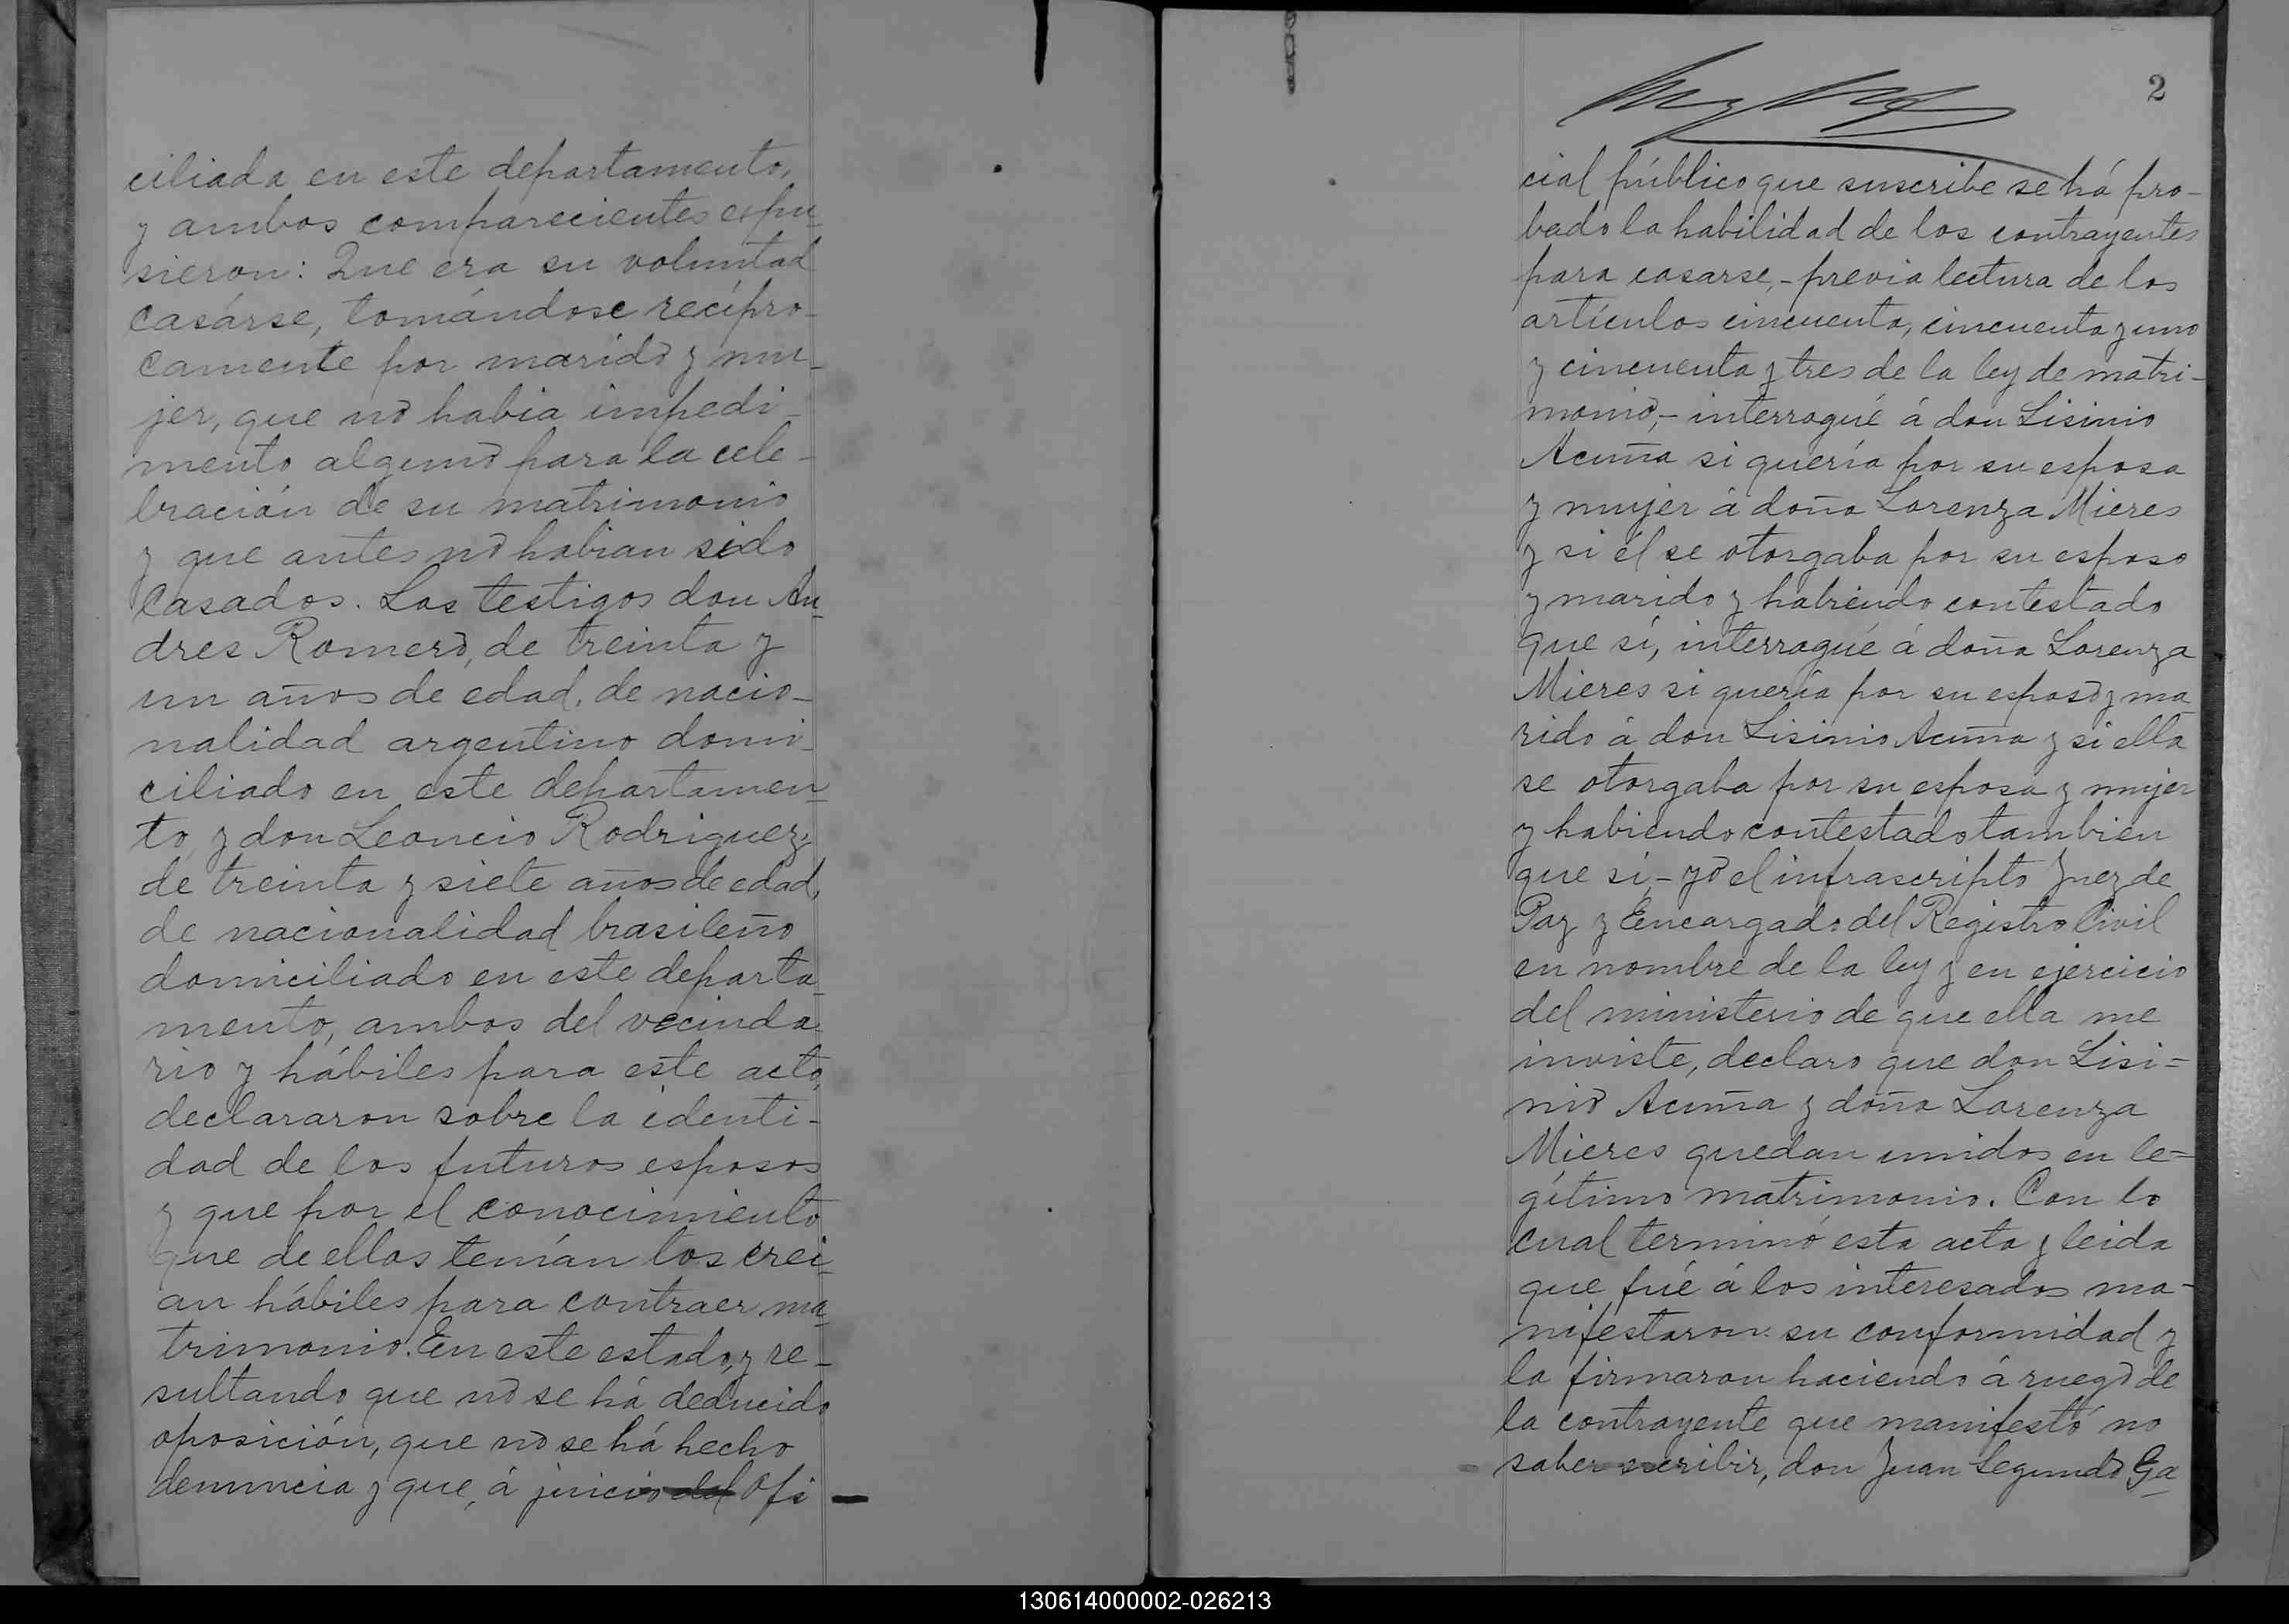 ciliada en este departamento,
y ambos comparecientes espu-
sieron: Que era su voluntad
casárse, tomándose recípro-
camente por marido y mu-
jer, que nó habia impedi-
mento algunó para la cele-
bración de su matrimonio
y que antes nó habian sido
casados. Los testigos don An-
dres Romeró, de treinta y
un años de edad, de nacio-
nalidad argentino domi-
ciliado en este departamen-
to, y don Leoncio Rodriguez,
de treinta y siete años de edad,
de nacionalidad brasileño
domiciliado en este departa-
mento, ambos del vecinda-
rio y hábiles para este acto,
declararon sobre la identi-
dad de los futuros esposos
y que por el conocimiento
que de ellos tenían los crei-
an hábiles para contraer ma-
trimonio. En este estado, y re-
sultando que nó se há deducido
oposición, que nó se há hecho
denuncia y que, á juicio del Ofi
2
cial público que suscribe se há pro-
bado la habilidad de los contrayentes
para casarse,- previa lectura de los
artículos cincuenta, cincuenta y uno
y cincuenta y tres de la ley de matri-
monio,- interrogué á don Lisinio
Acuña si quería por su esposa
y mujer á doña Lorenza Mieres
y si él se otorgaba por su esposo
y marido y habiendo contestado
que sí, interrogué á doña Lorenza
Mieres si quería por su esposó y ma-
rido á don Lisinio Acuña y si ella
se otorgaba por su esposa y mujer
y habiendo contestado tambien
que sí,- yó el infrascripto Juez de
Paz y Encargado del Registro Civil
en nombre de la ley y en ejercicio
del ministerio de que ella me
inviste, declaro que don Lisi=
nió Acuña y doña Lorenza
Mieres quedan unidos en le=
gítimo matrimonio. Con lo
cual terminó esta acta y leida
que fué á los interesados ma-
nifestaron su conformidad y
la firmaron haciendo á ruegó de
la contrayente que manifestó no
saber escribir, don Juan Segundó Ga-
130614000002-026213